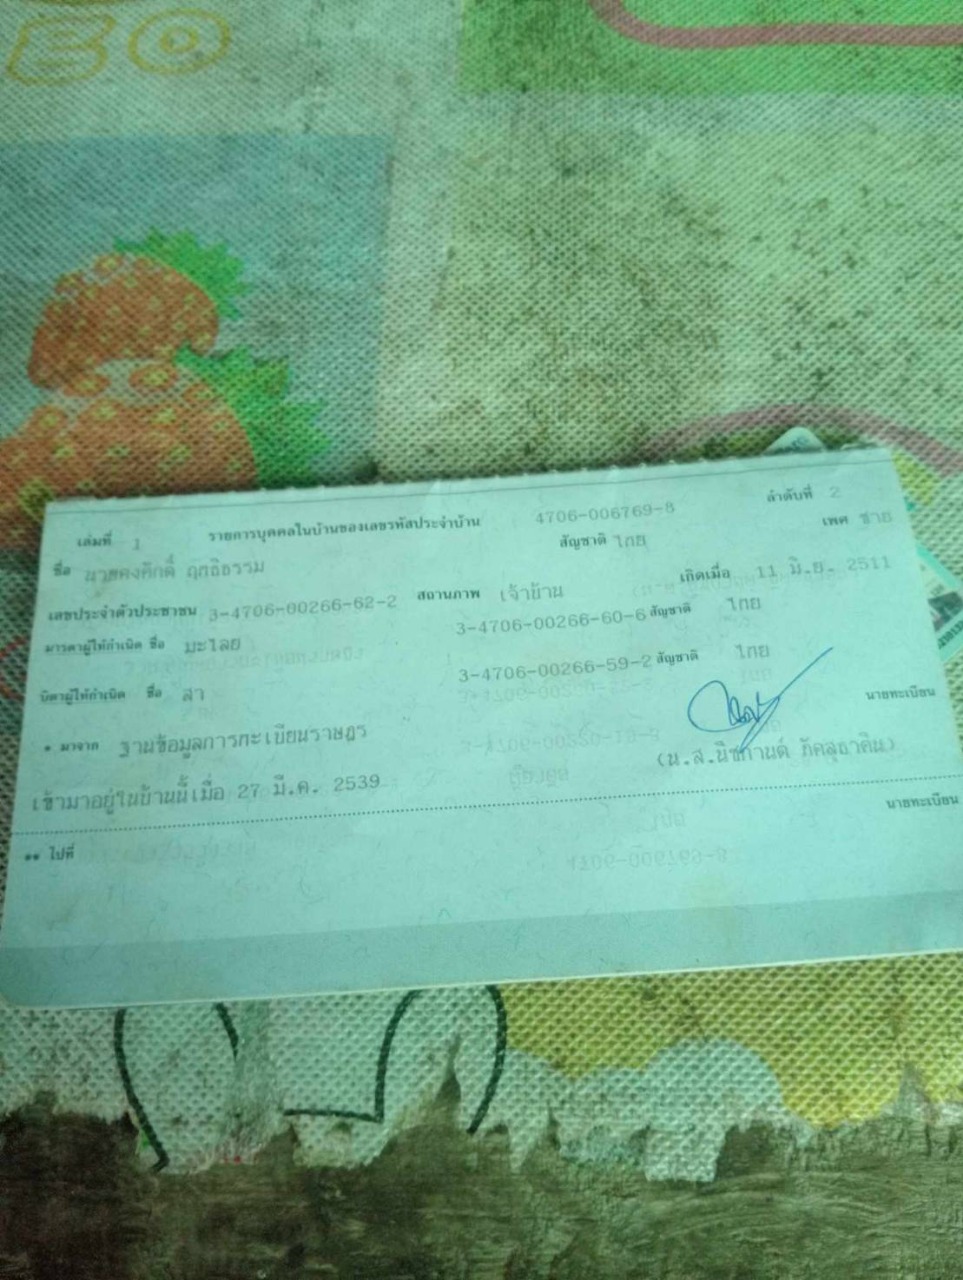 เล่มที่ 1 รายการบุคคลในบ้านของเลขรหัสประจำบ้าน 4706-006769-8 ลำดับที่ 2
ชื่อ นายคงศักดิ์ ฤทธิธรรม สัญชาติ ไทย เพศ ชาย
เลขประจำตัวประชาชน 3-4706-00266-62-2 สถานภาพ เจ้าบ้าน เกิดเมื่อ 11 มิ.ย. 2511
มารดาผู้ให้กำเนิด ชื่อ มะไลย 3-4706-00266-60-6 สัญชาติ ไทย
บิดาผู้ให้กำเนิด ชื่อ สา 3-4706-00266-59-2 สัญชาติ ไทย
* มาจาก ฐานข้อมูลการทะเบียนราษฎร นายทะเบียน
เข้ามาอยู่ในบ้านนี้เมื่อ 27 มี.ค. 2539 (น.ส.นิชกานต์
** ไปที่ นายทะเบียน